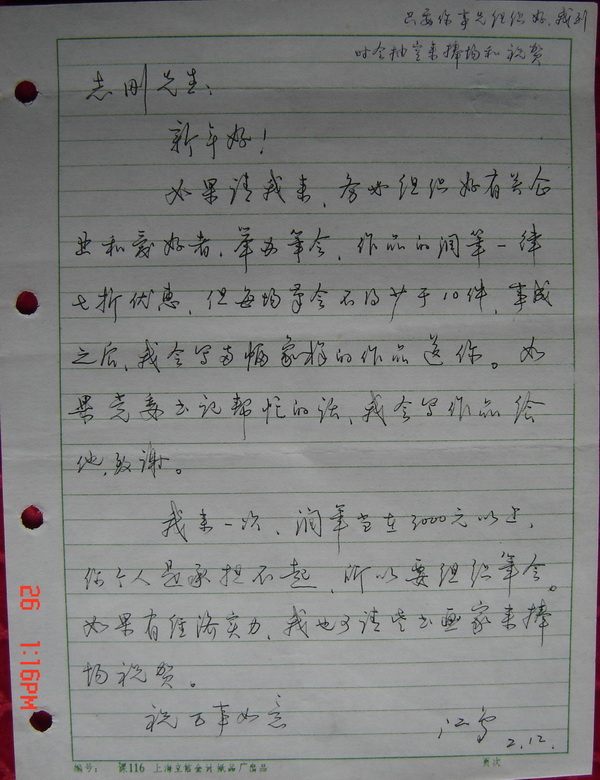 只要你事先组织好,我到
时会抽空来捧场和祝贺
志刚先生:
新年好!
如果请我来,务必组织好有关企
业和爱好者,举办笔会,作品的润笔一律
七折优惠,但每场笔会不得少于10件,事成
之后,我会写两幅象样的作品送你。如
果党委书记帮忙的话,我会写作品给
他,致谢。
我来一次,润笔当在3000元以上,
你个人是承担不起,所以要组织笔会。
如果有经济实力,我也可请些书画家来捧
场祝贺。
祝万事如意
2.12.
编号: 课116 上海立信会计纸品厂出品 页次
26 1:16PM